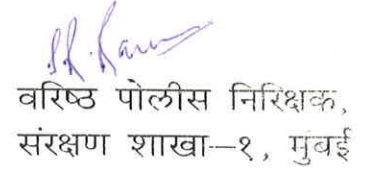 वरिष्ठ पोलीस निरिक्षक,
संरक्षण शाखा–१, मुंबई